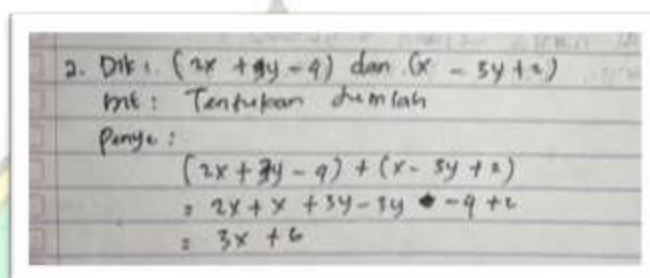 2. Dik : (2x + 3y - 9) dan (x - 3y + 2)
Dit : Tentukan Jumlah
Penye :
(2x + 3y - 9) + (x - 3y + 2)
= 2x + x + 3y - 3y - 9 + 2
= 3x + 6